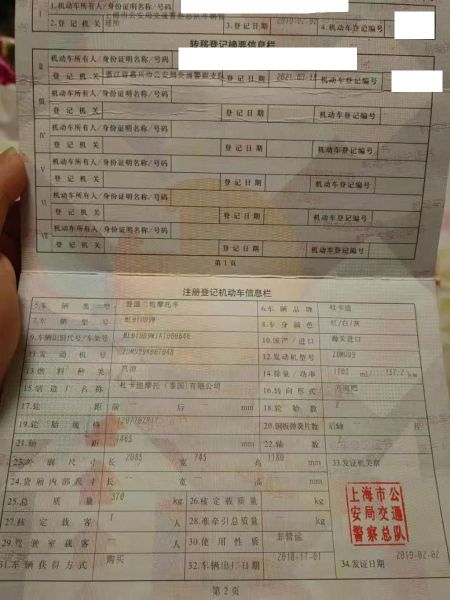 1.机动车所有人/身份证明名称/号码
2.登记机关 3.登记日期 2019-02-02 4.机动车登记编号
转移登记摘要信息栏
II 机动车所有人/身份证明名称/号码
登记机关 浙江省嘉兴市公安局交通警察支队 登记日期 机动车登记编号
III 机动车所有人/身份证明名称/号码
登记机关 登记日期 机动车登记编号
IV 机动车所有人/身份证明名称/号码
登记机关 登记日期 机动车登记编号
V 机动车所有人/身份证明名称/号码
登记机关 登记日期 机动车登记编号
VI 机动车所有人/身份证明名称/号码
登记机关 登记日期 机动车登记编号
VII 机动车所有人/身份证明名称/号码
登记机关 登记日期 机动车登记编号
第1页
注册登记机动车信息栏
5.车辆类型 普通二轮摩托车 6.车辆品牌 杜卡迪
7.车辆型号 8.车身颜色 红/白/灰
9.车辆识别代号/车架号 10.国产/进口
11.发动机号 12.发动机型号 ZDM1103
13.燃料种类 汽油 14.排量/功率 1103 ml/ 157.2 kw
15.制造厂名称 杜卡迪摩托(泰国)有限公司 16.转向形式 方向把
17.轮距 前 后 mm 18.轮胎数 2
19.轮胎规格 20.钢板弹簧片数 后轴 片
21.轴距 1465 mm 22.轴数 2
23.外廓尺寸 长 2085 宽 745 高 1180 mm 33.发证机关章
24.货厢内部尺寸 长 宽 高 mm
25.总质量 370 kg 26.核定载质量 kg
27.核定载客 1 人 28.准牵引总质量 kg
29.驾驶室载客 人 30.使用性质 非营运
31.车辆获得方式 购买 32.车辆出厂日期 2018-11-01 34.发证日期 2019-02-02
上海市公
安局交通
警察总队
第2页